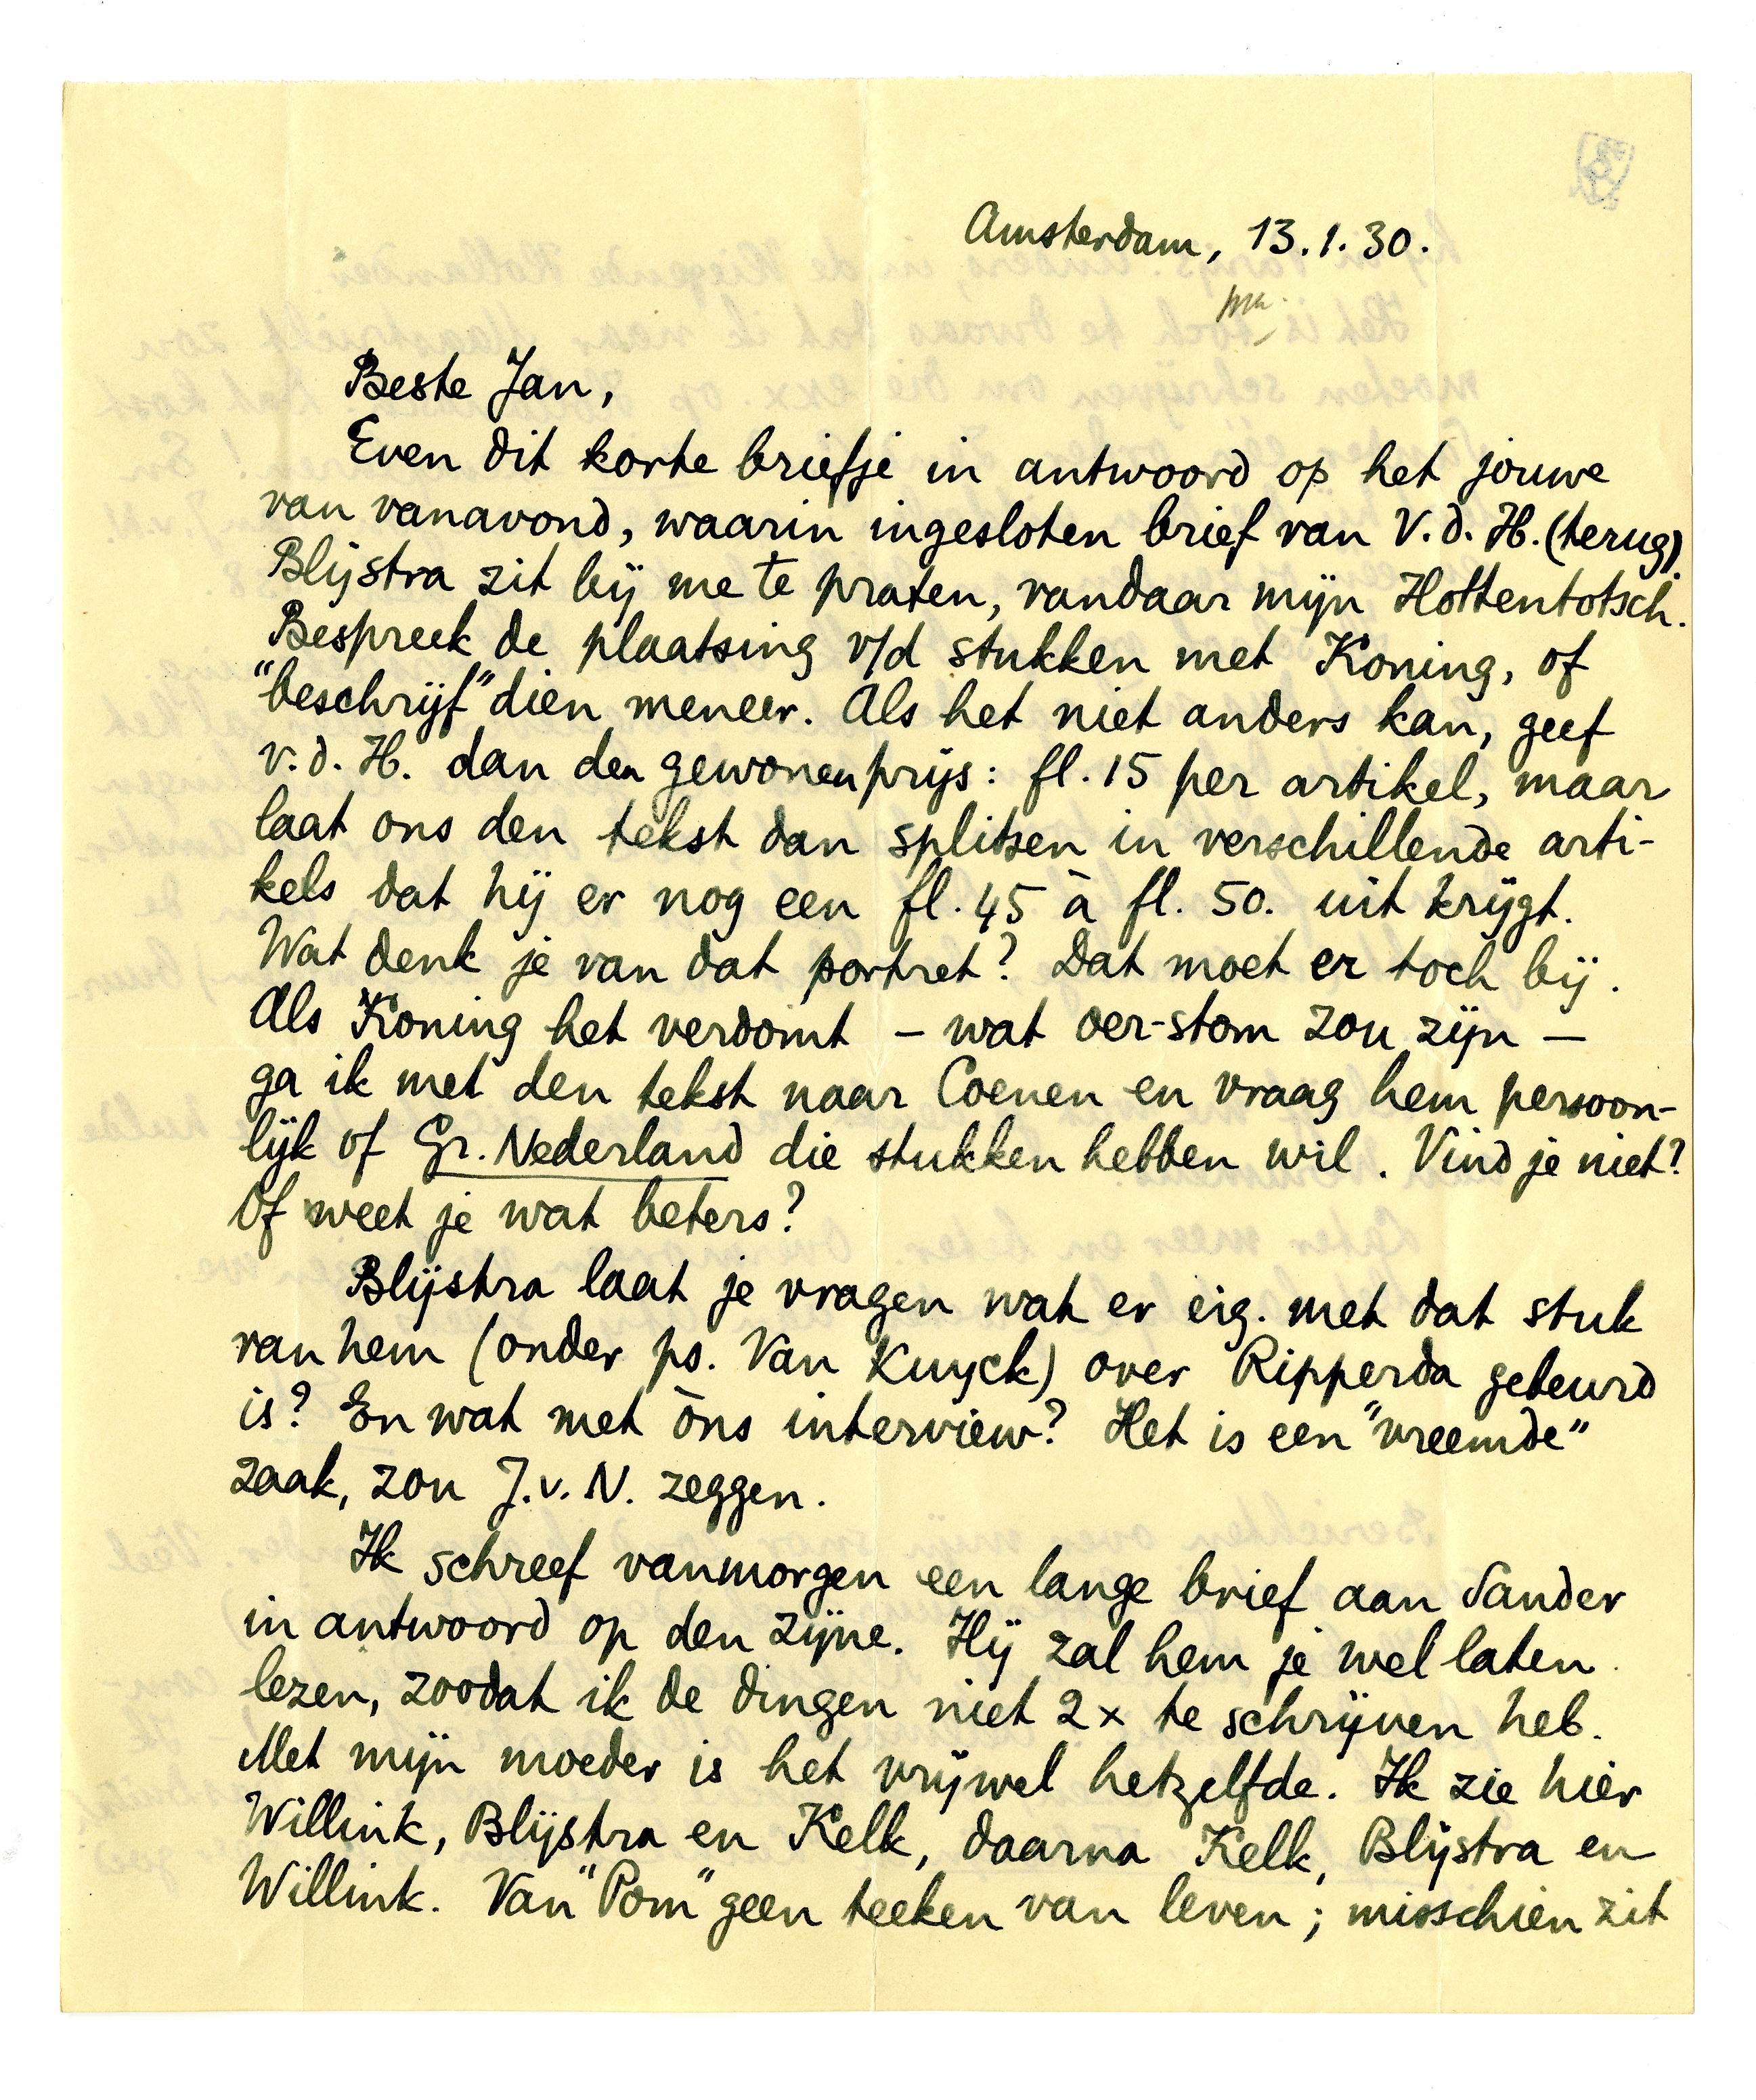 Amsterdam, 13.1.30.
Beste Jan,
Even dit korte briefje in antwoord op het jouwe
van vanavond, waarin ingesloten brief van V.d.H. (terug).
Blijstra zit bij me te praten, vandaar mijn Hottentotsch.
Bespreek de plaatsing v/d stukken met Koning, of
"beschrijf" dien meneer. Als het niet anders kan, geef
v.d.H. dan den gewonen prijs: fl. 15 per artikel, maar
laat ons den tekst dan splitsen in verschillende arti-
kels dat hij er nog een fl. 45 à fl. 50. uit krijgt.
Wat denk je van dat portret? Dat moet er toch bij.
Als Koning het verdomt – wat oer-stom zou zijn –
ga ik met den tekst naar Coenen en vraag hem persoon-
lijk of Gr. Nederland die stukken hebben wil. Vind je niet?
Of weet je wat beters?
Blijstra laat je vragen wat er eig. met dat stuk
van hem (onder ps. Van Kuyck) over Ripperda gebeurd
is? En wat met òns interview? Het is een "vreemde"
zaak, zou J.v.N. zeggen.
Ik schreef vanmorgen een lange brief aan Sander
in antwoord op den zijne. Hij zal hem je wel laten
lezen, zoodat ik de dingen niet 2x te schrijven heb.
Met mijn moeder is het vrijwel hetzelfde. Ik zie hier
Willink, Blijstra en Kelk, daarna Kelk, Blijstra en
Willink. Van "Pom" geen teeken van leven; misschien zit